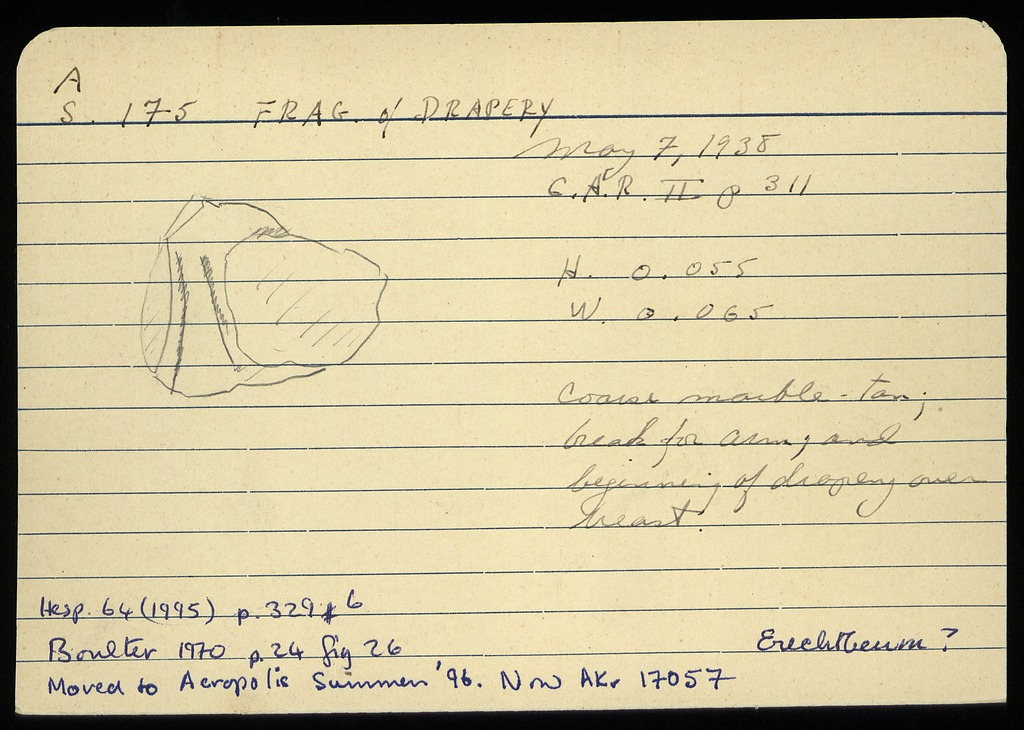 A
S. 175 FRAG. of DRAPERY
May 7, 1938
G.A.R. II p 311
H. 0.055
W. 0.065
Coarse marble - tan;
break for arm; and
beginning of drapery over
breast.
Hesp. 64 (1995) p. 329 # 6
Boulter 1970 p. 24 fig 26
Erechtheum?
Moved to Acropolis Summer '96. Now AK. 17057